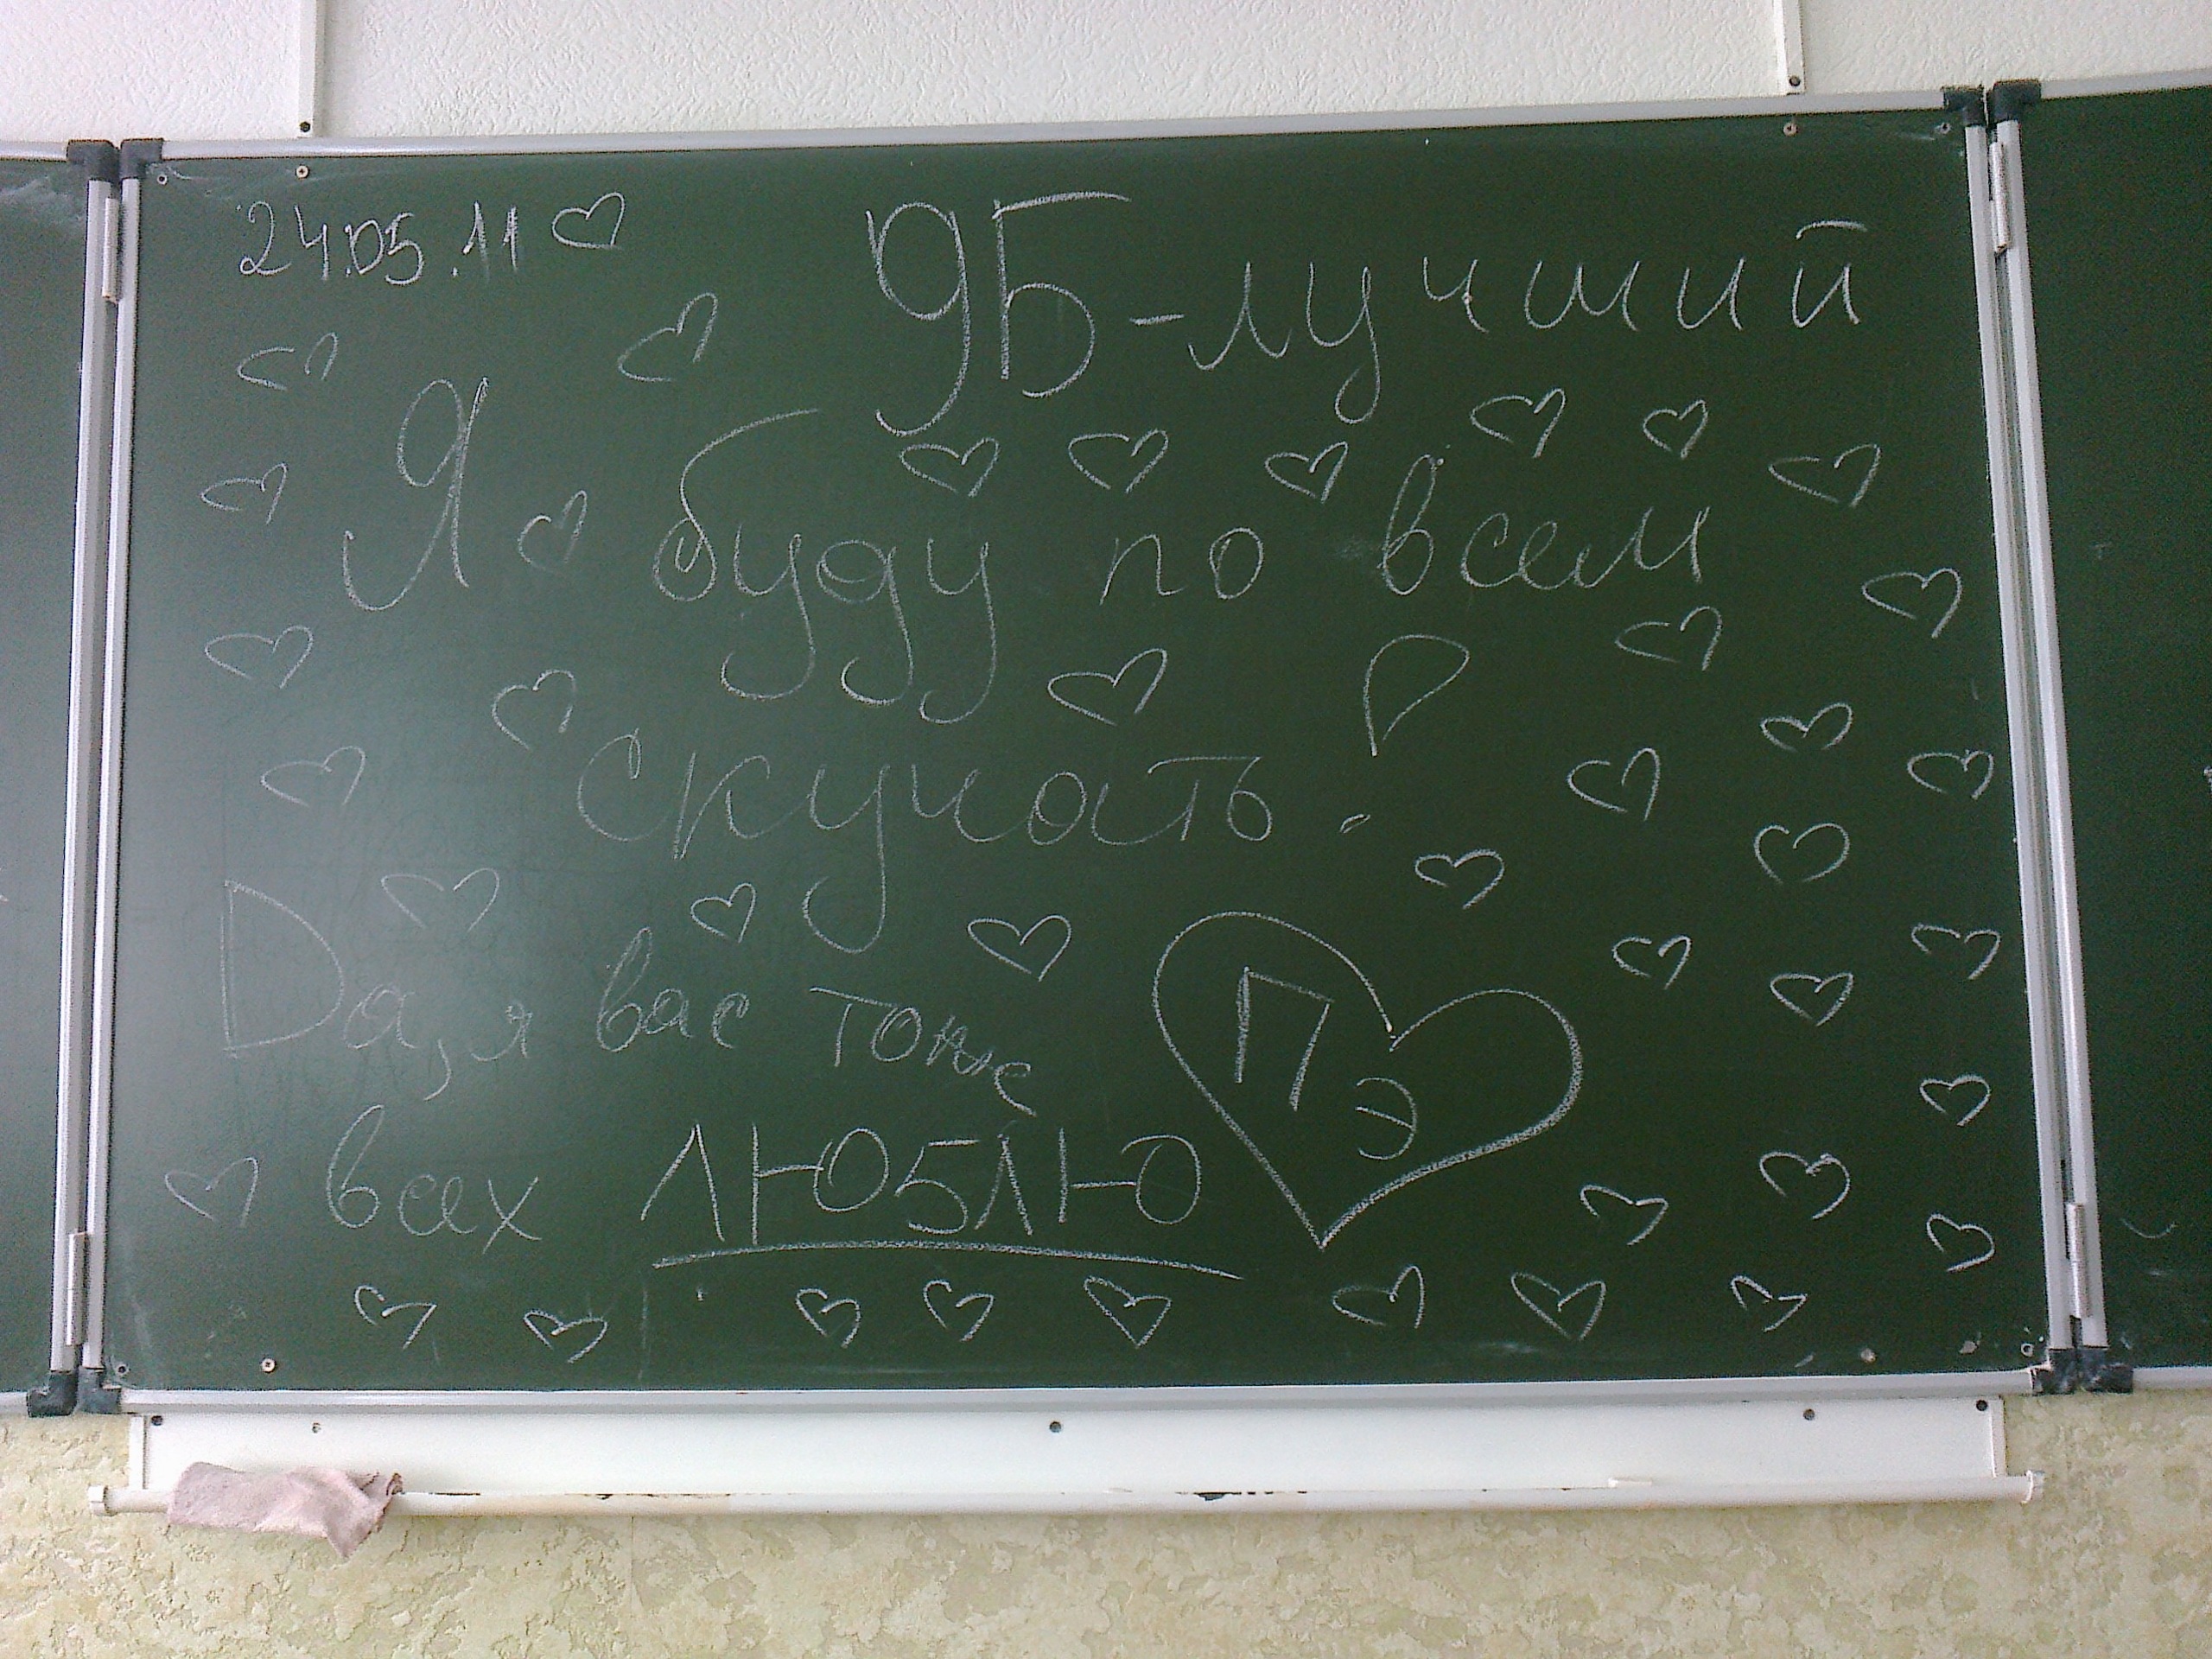 24.05.11
9Б-лучший
Я буду по всем
скучать!
Dа, я вас тоже
всех ЛЮБЛЮ
П
Э